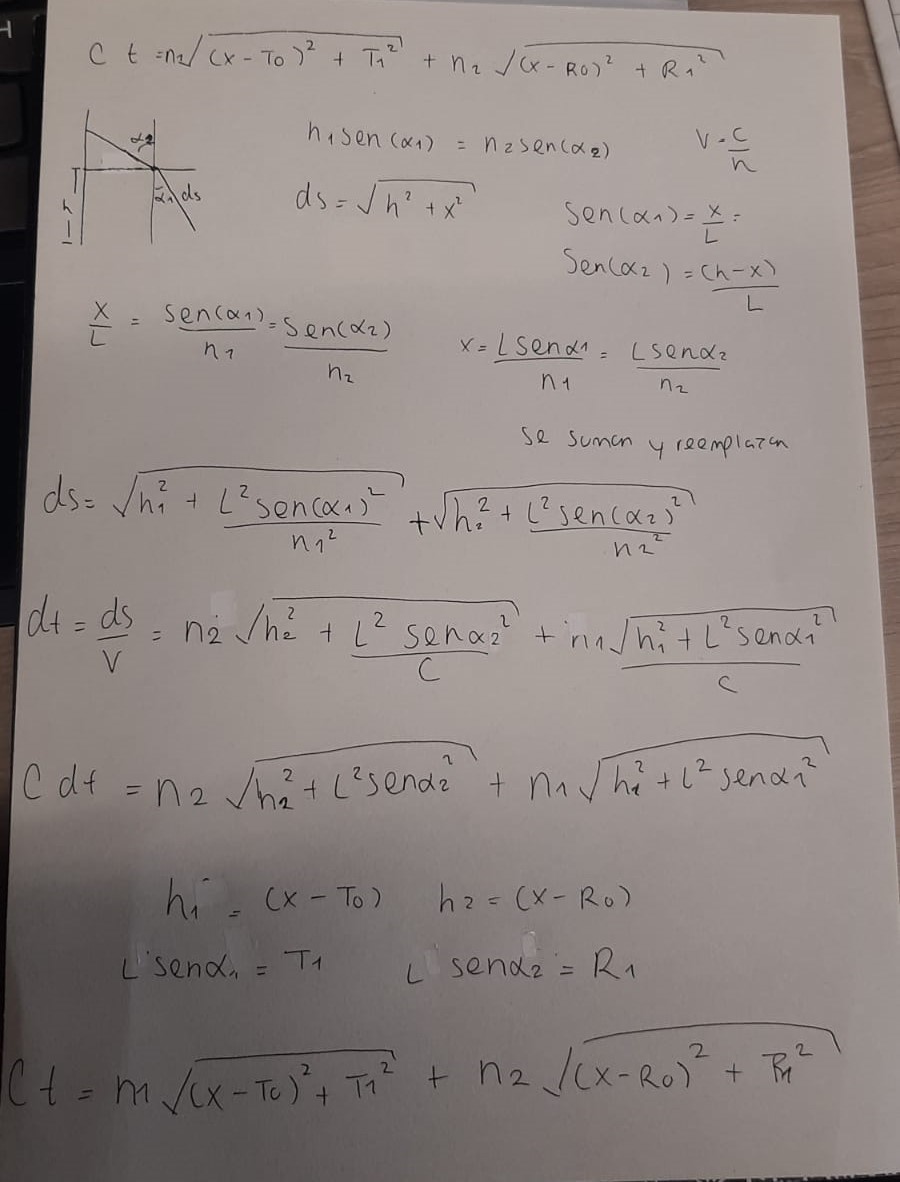 C t = n₂√((x - T₀)² + T₁²) + n₂√((x - R₀)² + R₁²)
n₁ sen(α₁) = n₂ sen(α₂)
V = C/n
α₂
T
h
α₁ ds
ds = √(h² + x²)
Sen(α₁) = x/L =
Sen(α₂) = (h-x)/L
x/L = Sen(α₁)/n₁ = Sen(α₂)/n₂
x = L Senα₁/n₁ = L Senα₂/n₂
se suman y reemplazan
ds = √(h₁² + L² sen(α₁)²/n₁²) + √(h₂² + L² sen(α₂)²/n₂²)
dt = ds/V = n₂√(h₂² + L² senα₂²)/C + n₁√(h₁² + L² senα₁²)/C
C dt = n₂√(h₂² + L² senα₂²) + n₁√(h₁² + L² senα₁²)
h₁ = (x - T₀) h₂ = (x - R₀)
L senα₁ = T₁ L senα₂ = R₁
C t = n₁√((x - T₀)² + T₁²) + n₂√((x - R₀)² + R₁²)